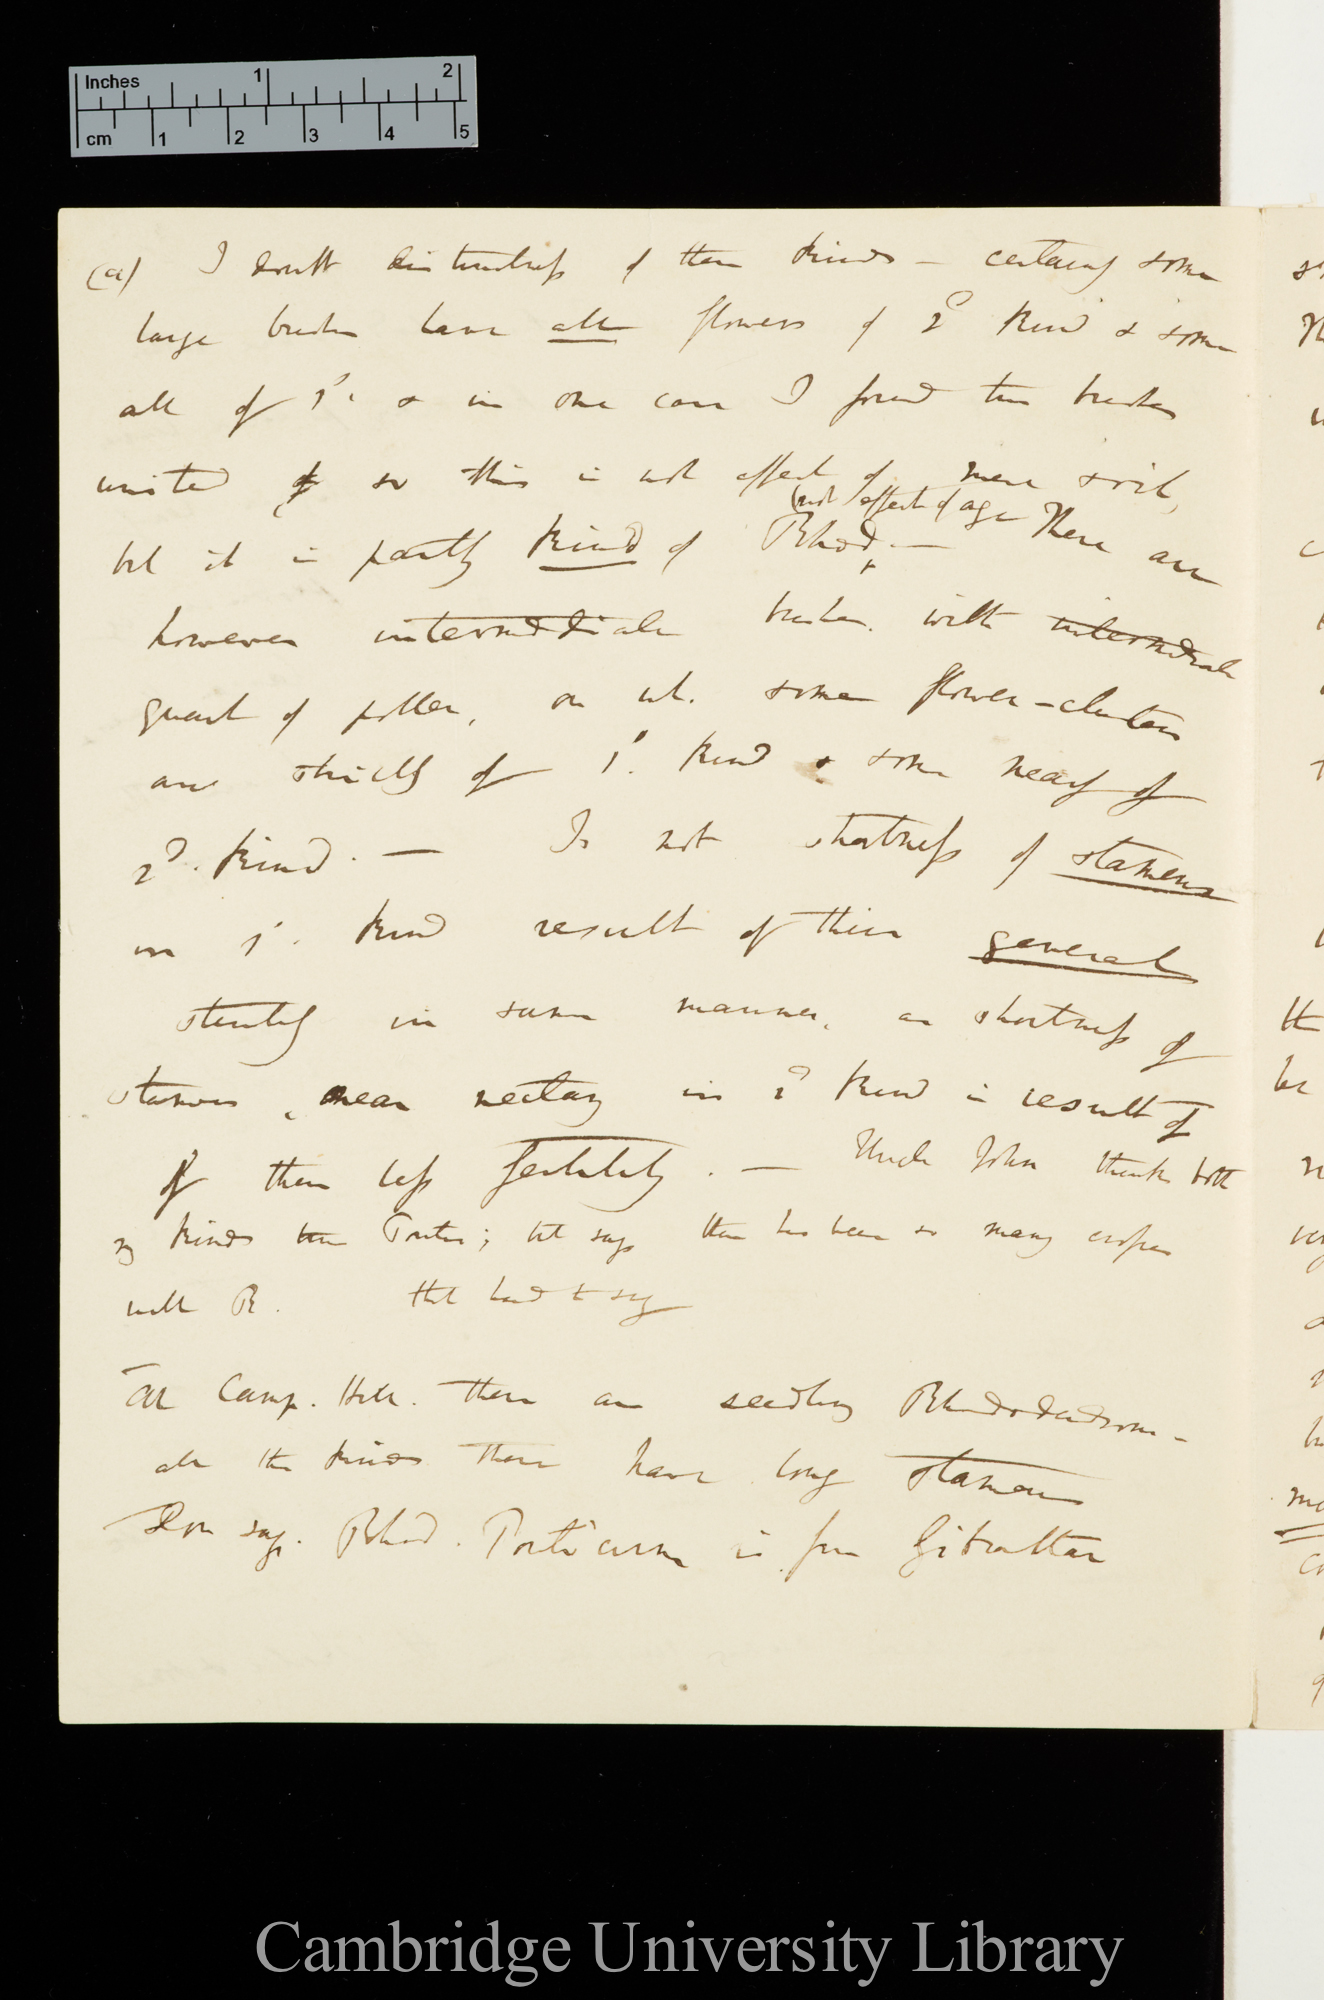 Inches 1 2
cm 1 2 3 4 5
(a) I doubt distinctness of these kinds — certainly some
large bushes have all flowers of 2d kind & some
all of 1st. & in one case I found two bushes
united so this is not effect of mere soil,
(not effect of age
but it is partly kind of Rhod. — There are
however intermediate bushes with intermediate
quant of pollen, on wh. some flower-clusters
are strictly of 1st. kind & some nearly of
2d. kind. — Is not shortness of stamens
in 1st. kind result of their general
sterility in same manner, as shortness of
stamens, near nectary in 2d kind is result of
of their less fertility. — Uncle John thinks both
my kinds Pontic; but says there has been so many crosses
with R. that hard to say
At Camp. Hill. there are seedling Rhododendrons –
all the kinds there have long stamens
Don says. Rhod. Ponticum is from Gibraltar
Cambridge University Library